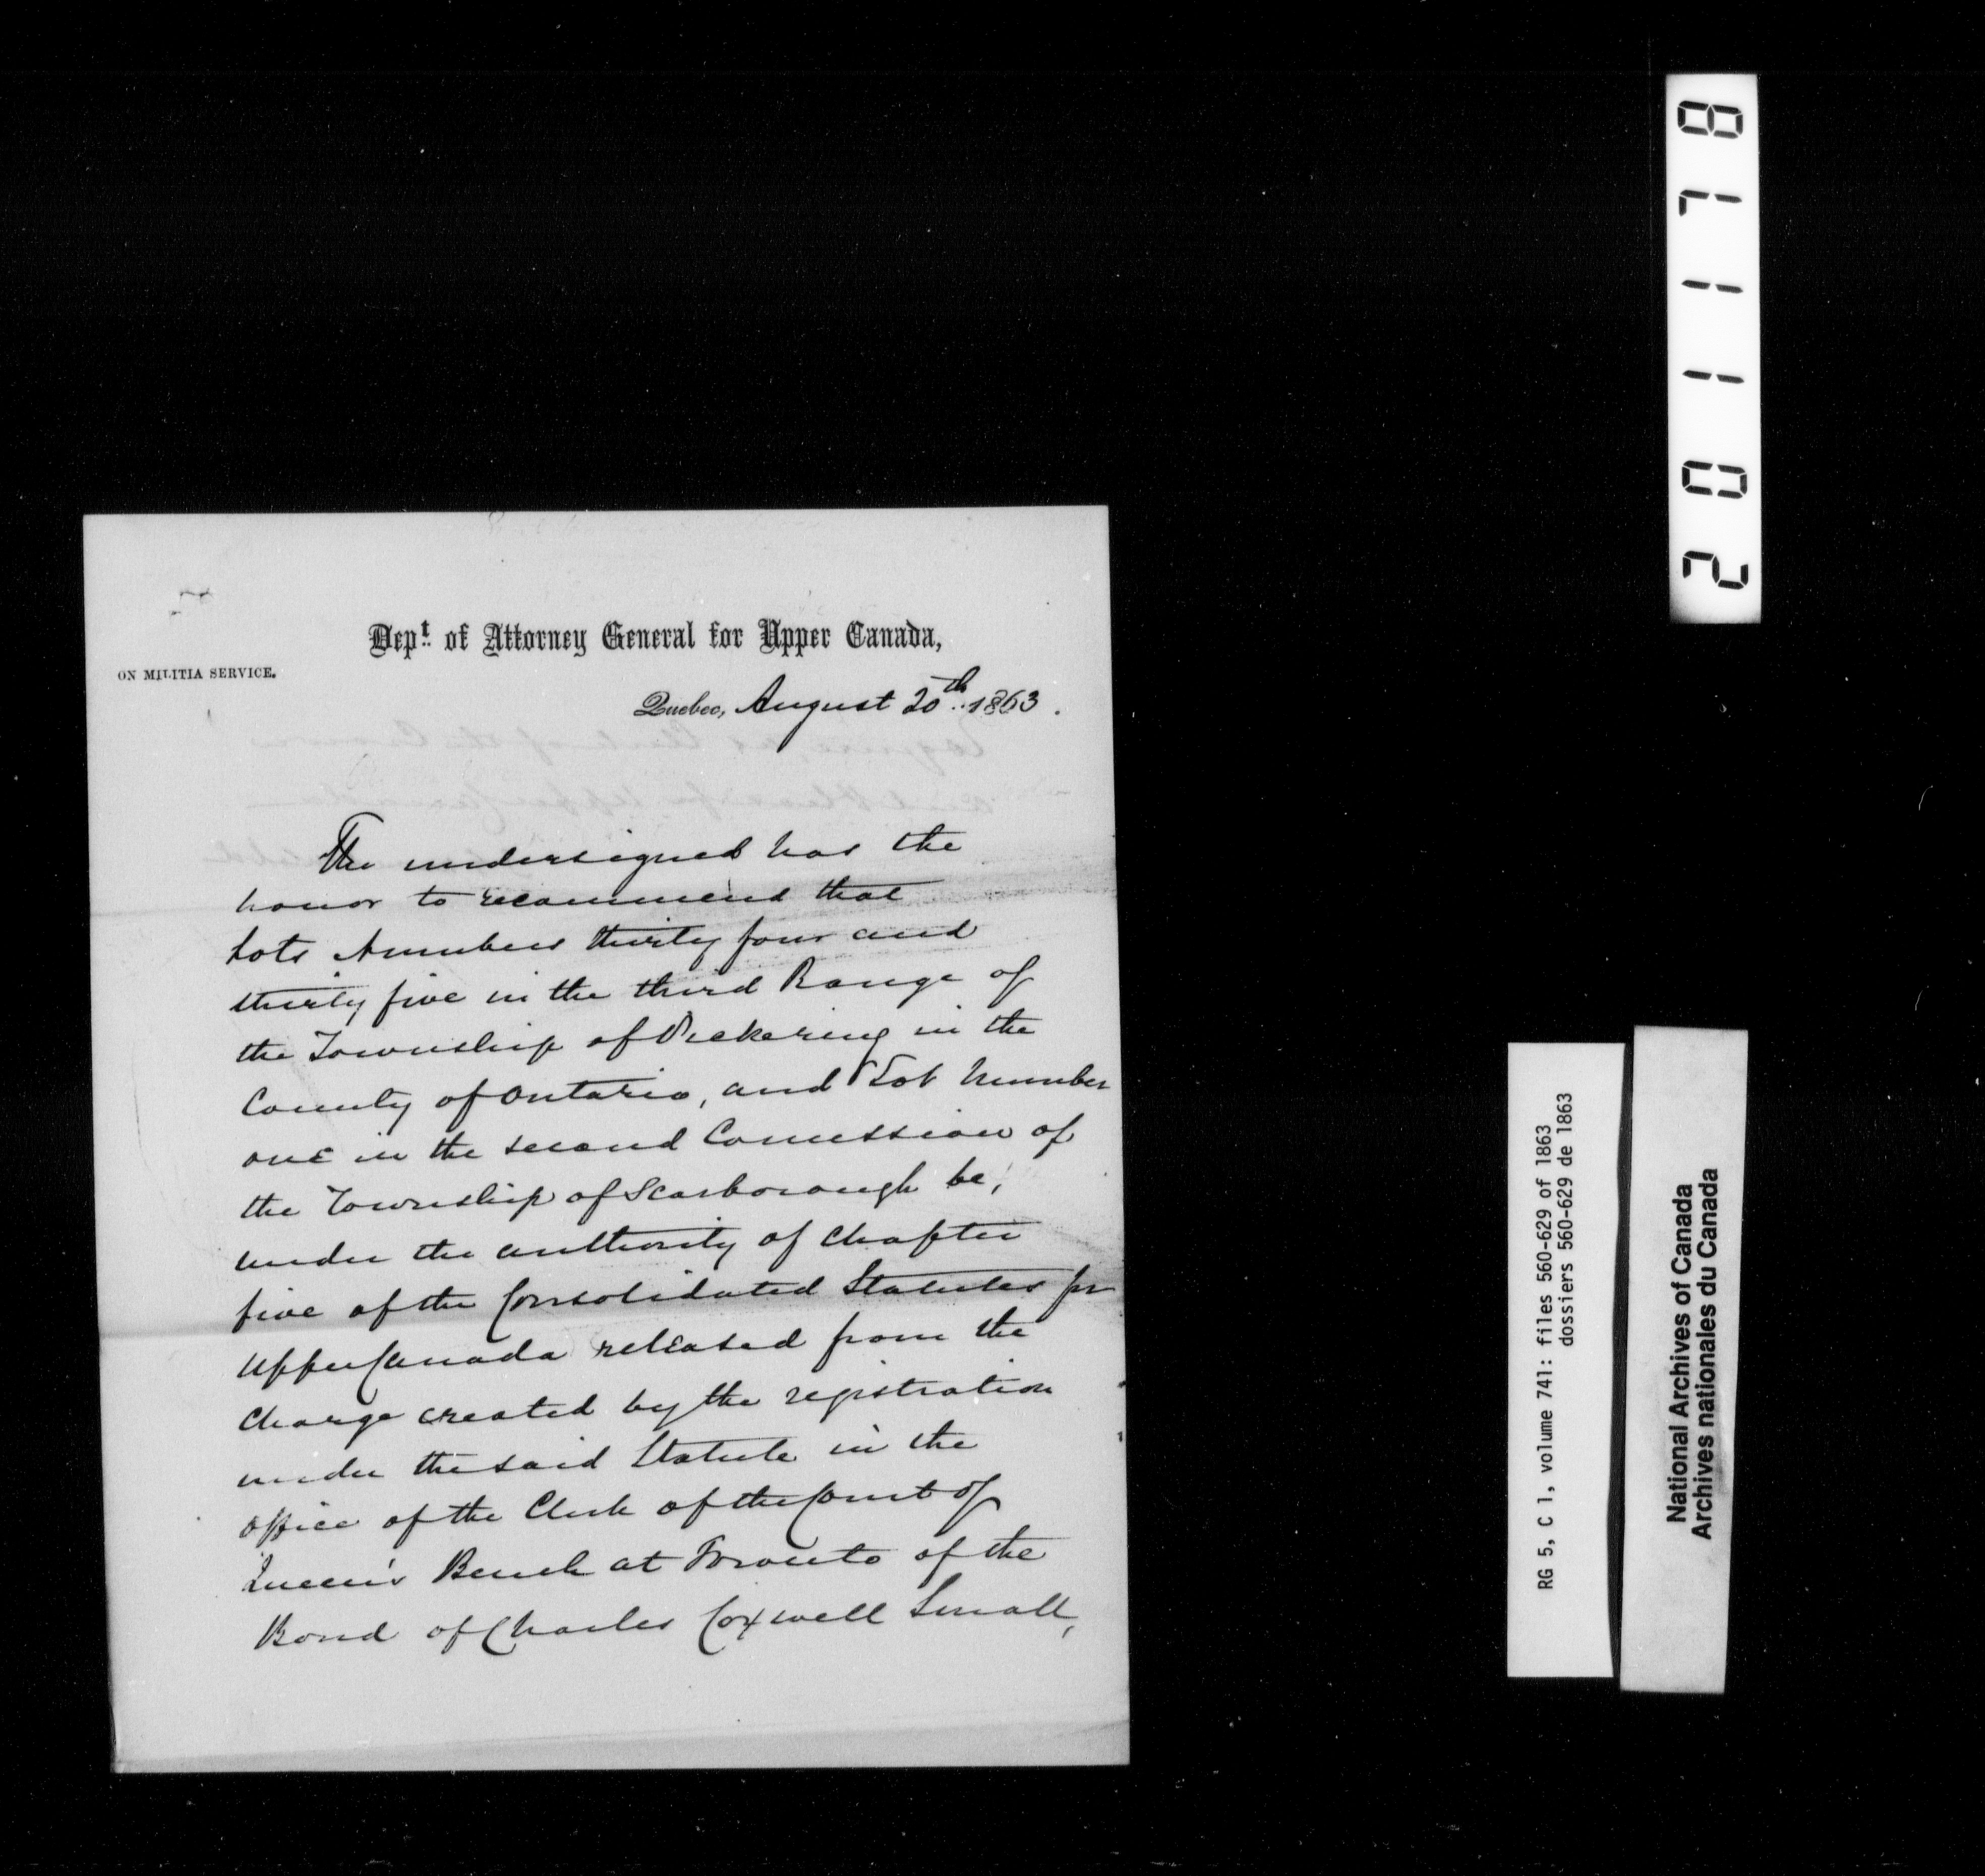 Dep.t of Attorney General for Upper Canada,
ON MILITIA SERVICE.
Quebec, August 20th 1863.
The undersigned has the
honor to recommend that
Lots Numbers thirty four and
thirty five in the third Range of
the Township of Pickering in the
County of Ontario, and Lot Number
one in the second Concession of
the Township of Scarborough be,
under the authority of Chapter
five of the Consolidated Statutes for
Upper Canada released from the
charge created by the registration
under the said Statute in the
office of the Clerk of the Court of
Queen's Bench at Toronto of the
Bond of Charles Coxwell Small,
201178
RG 5, C 1, volume 741: files 560-629 of 1863
dossiers 560-629 de 1863
National Archives of Canada
Archives nationales du Canada